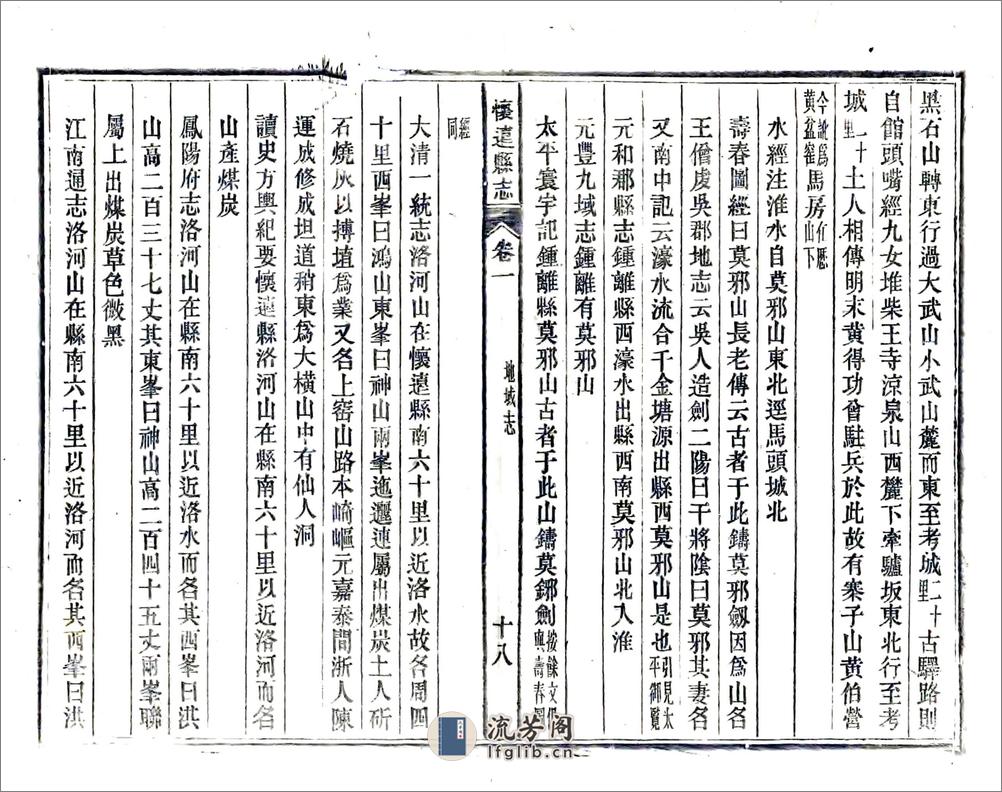 黑石山轉東行過大武山小武山麓而東至考城二十里古驛路則
自館頭嘴經九女堆柴王寺涼泉山西麓下牽驢坂東北行至考
城十里土人相傳明末黃得功曾駐兵於此故有寨子山黃伯營
今訛為黃盆窑馬房在歷山下
水經注淮水自莫邪山東北逕馬頭城北
壽春圖經曰莫邪山長老傳云古者于此鑄莫邪劔因爲山名
王僧虔吳郡地志云吳人造劍二陽曰干將陰曰莫邪其妻名
又南中記云濠水流合千金塘源出縣西莫邪山是也引見太平御覽
元和郡縣志鍾離縣西濠水出縣西南莫邪山北入淮
元豐九域志鍾離有莫邪山
太平寰宇記鍾離縣莫邪山古者于此山鑄莫鋣劍按餘文與壽春圖
懷遠縣志 卷一 地域志 十八
經同
大清一統志洛河山在懷遠縣南六十里以近洛水故名周四
十里西峯曰鴻山東峯曰神山兩峯迤邐連屬出煤炭土人斫
石燒灰以摶埴爲業又名上窑山路本崎嶇元嘉泰間浙人陳
運成修成坦道稍東爲大橫山中有仙人洞
讀史方輿紀要懷遠縣洛河山在縣南六十里以近洛河而名
山產煤炭
鳳陽府志洛河山在縣南六十里以近洛水而名其西峯曰洪
山高二百三十七丈其東峯曰神山高二百四十五丈兩峯聯
屬上出煤炭草色微黑
江南通志洛河山在縣南六十里以近洛河而名其西峯曰洪
流芳阁
lfglib.cn